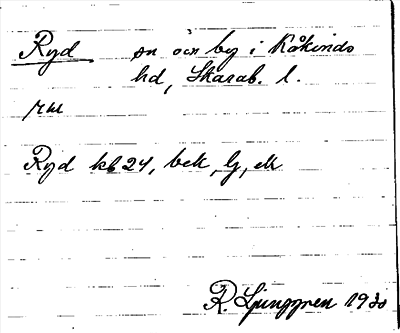 Ryd sn och by i Kåkinds
hd, Skarab. l.
Ryd kb 24, bek, lj, ek
R. Ljunggren 1930